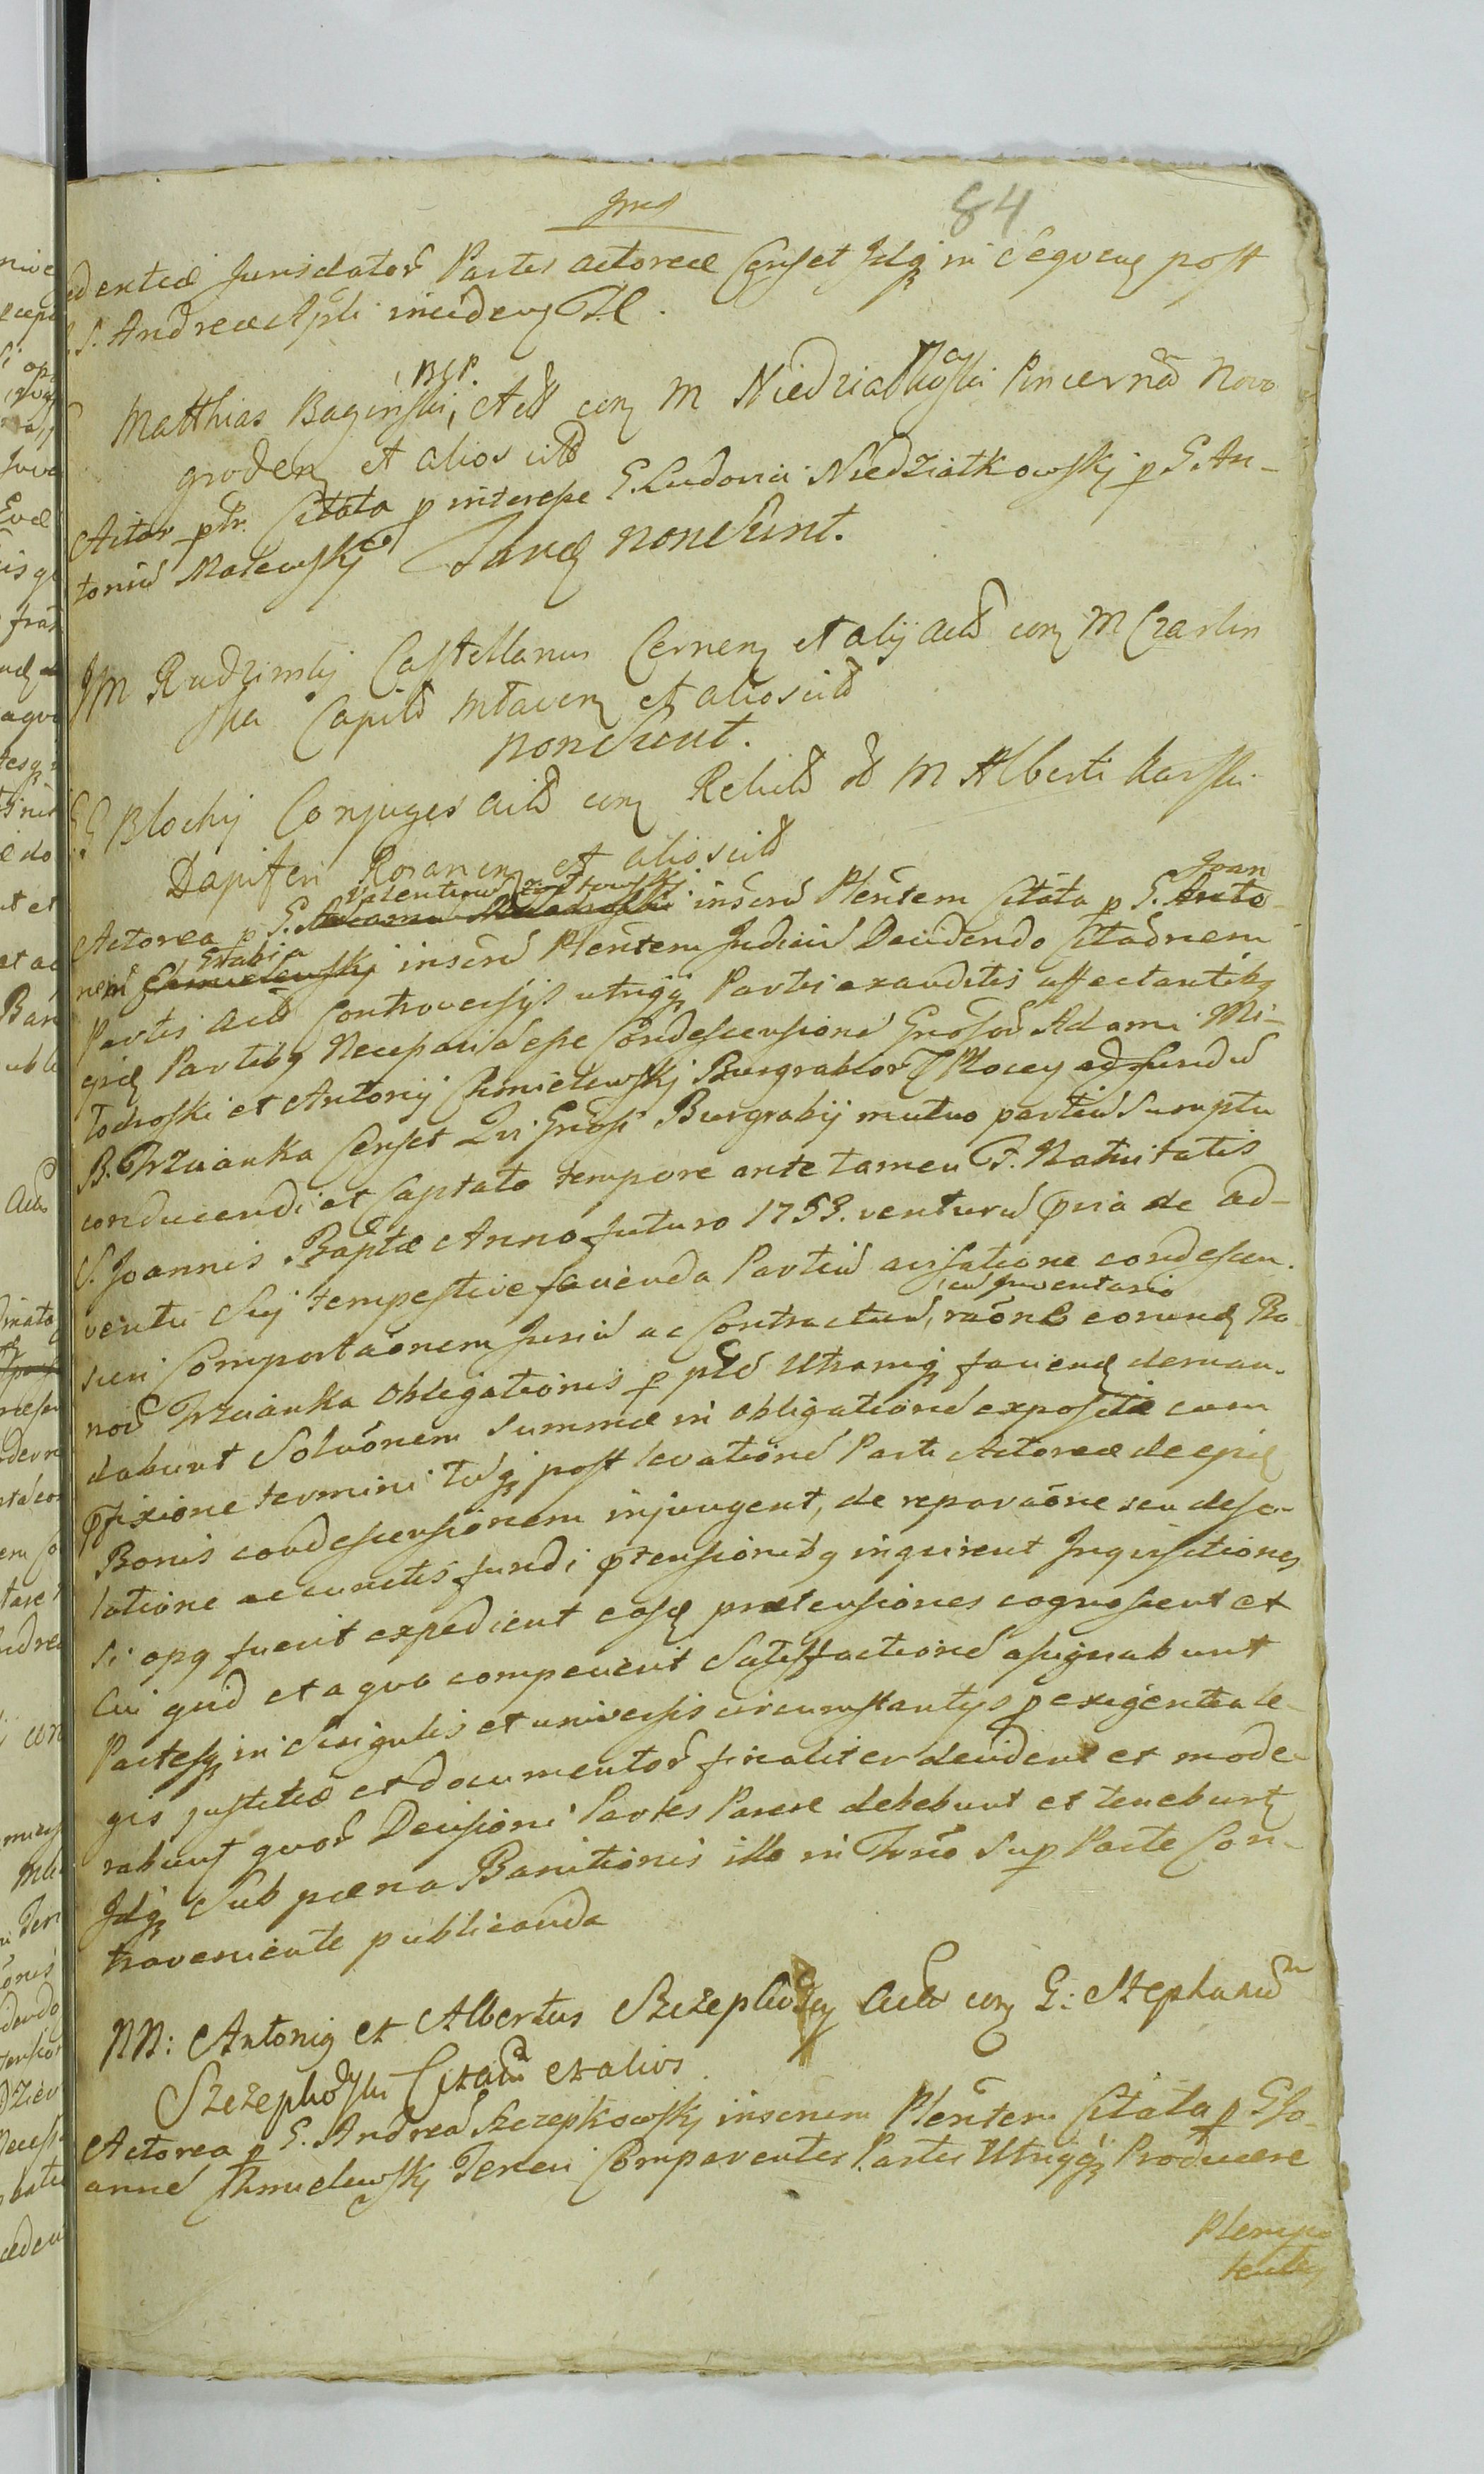 84
dentiâ Jurisdator̃ Partis actoreæ Censet Idqꝫ in Sequen̄ post
S. Andreæ Apli inciden̄
B G P.
Matthias Baginski, Actŭ con̄ M Niedziałkoski Pincernā Novo
groden̄ et alios citŭ
Actor ptr. Citata p interesse G. Ludovici Niedziałkowskj p G. An-
toniŭ Malewskj non sunt.
JM Rudzinskj Castellanus Cernen̄ et alij actŭ con̄ M Czarlin
ska Capitŭ Mlaven̄ et alios citŭ
non sunt.
GG Blockij Conjuges actŭ con̄ Relictŭ M Alberti Karski
Dapiferi Rozanen̄ et alios citŭ
Valentinŭ Joan
Actorea p G. inserŭ Plentem Citata p G. Anto-
Grabia
nem Chmielewskj inserŭ Plentem Judiciŭ Decidendo Citaonem
Partis actŭ Controversijs utriqꝫ Partis exauditis affectantibꝫ
Partibꝫ Necessariŭ esse Condescensionē Grosor̃ Adami Mi-
łodroski et Antonij Chmielewskj Burgrabior̃ Plocen̄ ad fundŭ
B. Trzcianka Censet Qui Grosi Burgrabij mutuo partiŭ Sumptu
conducendi et Captato tempore ante tamen F. Nativitatis
S. Joannis Baptæ Anno futuro 1753. venturŭ pvia de ad-
ventu Sui tempestive facienda Partiŭ avisatione condescen.
cŭ Inventario
suri Comportaonem Juriŭ ac Contractuŭ, raone eorund Bo
nor̃ Trzcianka obligationis p ptē Utramqꝫ facien̄ deman-
dabunt Soluonem Summæ in obligationē expositæ cum
pfixione termini post levationē Parti Actoreæ de
Bonis condescensionem injungent, de reparaone seu deso-
latione ac cunctis fundi ptensionibꝫ inquirent Inquisitiones
si opꝫ fuerit expedient easq pretensiones cognoscent et
Cui quid et a quo compeierit Satisfactionē assignabunt
Partesqꝫ in Singulis et universis circumstantijs p exigentia le-
gis justitiæ et documentor̃ finaliter decident et mode-
rabunt quor̃ Decisioni Partes Parere debebunt et tenebunt
Idqꝫ Sub pæna Banitionis illo in Trno Sup Parte Con-
traveniente publicanda
NN: Antoniꝫ et Albertus Szczepkoscy Actŭ con̄ G: Stephanŭ
Szczepkoski Citatŭ et alios
Actorea p G. Andreā Szczepkowskj inserem Plentem Citata p G Jo-
annē Chmielewskj Teneri Comparentes Partes Utriqꝫ Producere
Plenipo
tentes